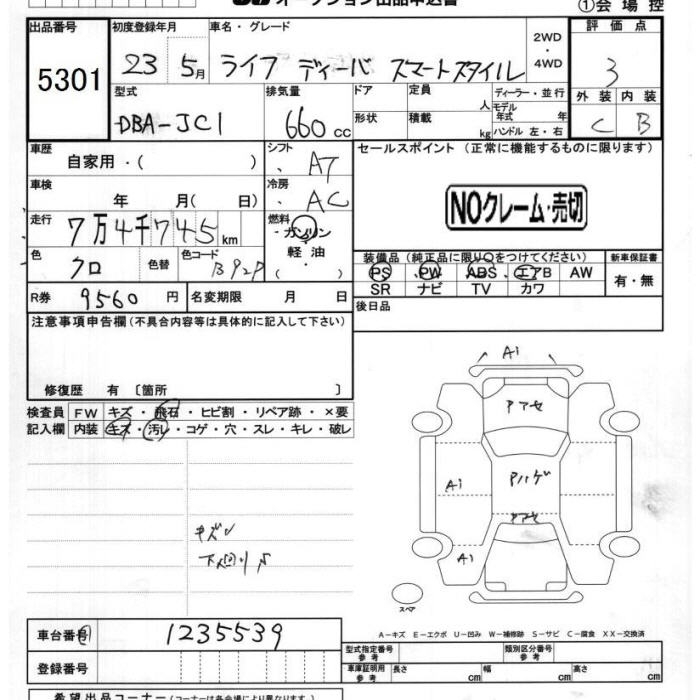 オークション出品申込書
①会場控
出品番号 初度登録年月 車名・グレード 2WD・4WD 評価点
5301 23 5月 ライフ ディーバ スマートスタイル 3
型式 排気量 ドア 定員 人 ディーラー・並行 外装 内装
DBA-JC1 660cc 形状 積載 kg モデル年式 年 ハンドル 左・右 C B
車歴 自家用・( ) シフト AT セールスポイント (正常に機能するものに限ります)
車検 年 月( 日) 冷房 AC NOクレーム・売切
走行 7万4千745km 燃料 ・ガソリン・軽油・( )
色 クロ 色替 色コード B92P
装備品 (純正品に限り○をつけてください) 新車保証書
PS PW ABS エアB AW 有・無
SR ナビ TV カワ
R券 9560円 名変期限 月 日 後日品
注意事項申告欄 (不具合内容等は具体的に記入して下さい)
修復歴 有 〔箇所 〕
検査員 FW キズ・飛石・ヒビ割・リペア跡・×要
記入欄 内装 キズ・汚レ・コゲ・穴・スレ・キレ・破レ
A1
アアセ
A1
アハゲ
アアセ
A1
キズ
下回り
スペア
A－キズ E－エクボ U－凹み W－補修跡 S－サビ C－腐食 XX－交換済
車台番号 1235539
型式指定番号 参考 類別区分番号 参考
登録番号 車庫証明用 参考 長さ cm 幅 cm 高さ cm
希望出品コーナー (コーナーは各会場により異なります。)